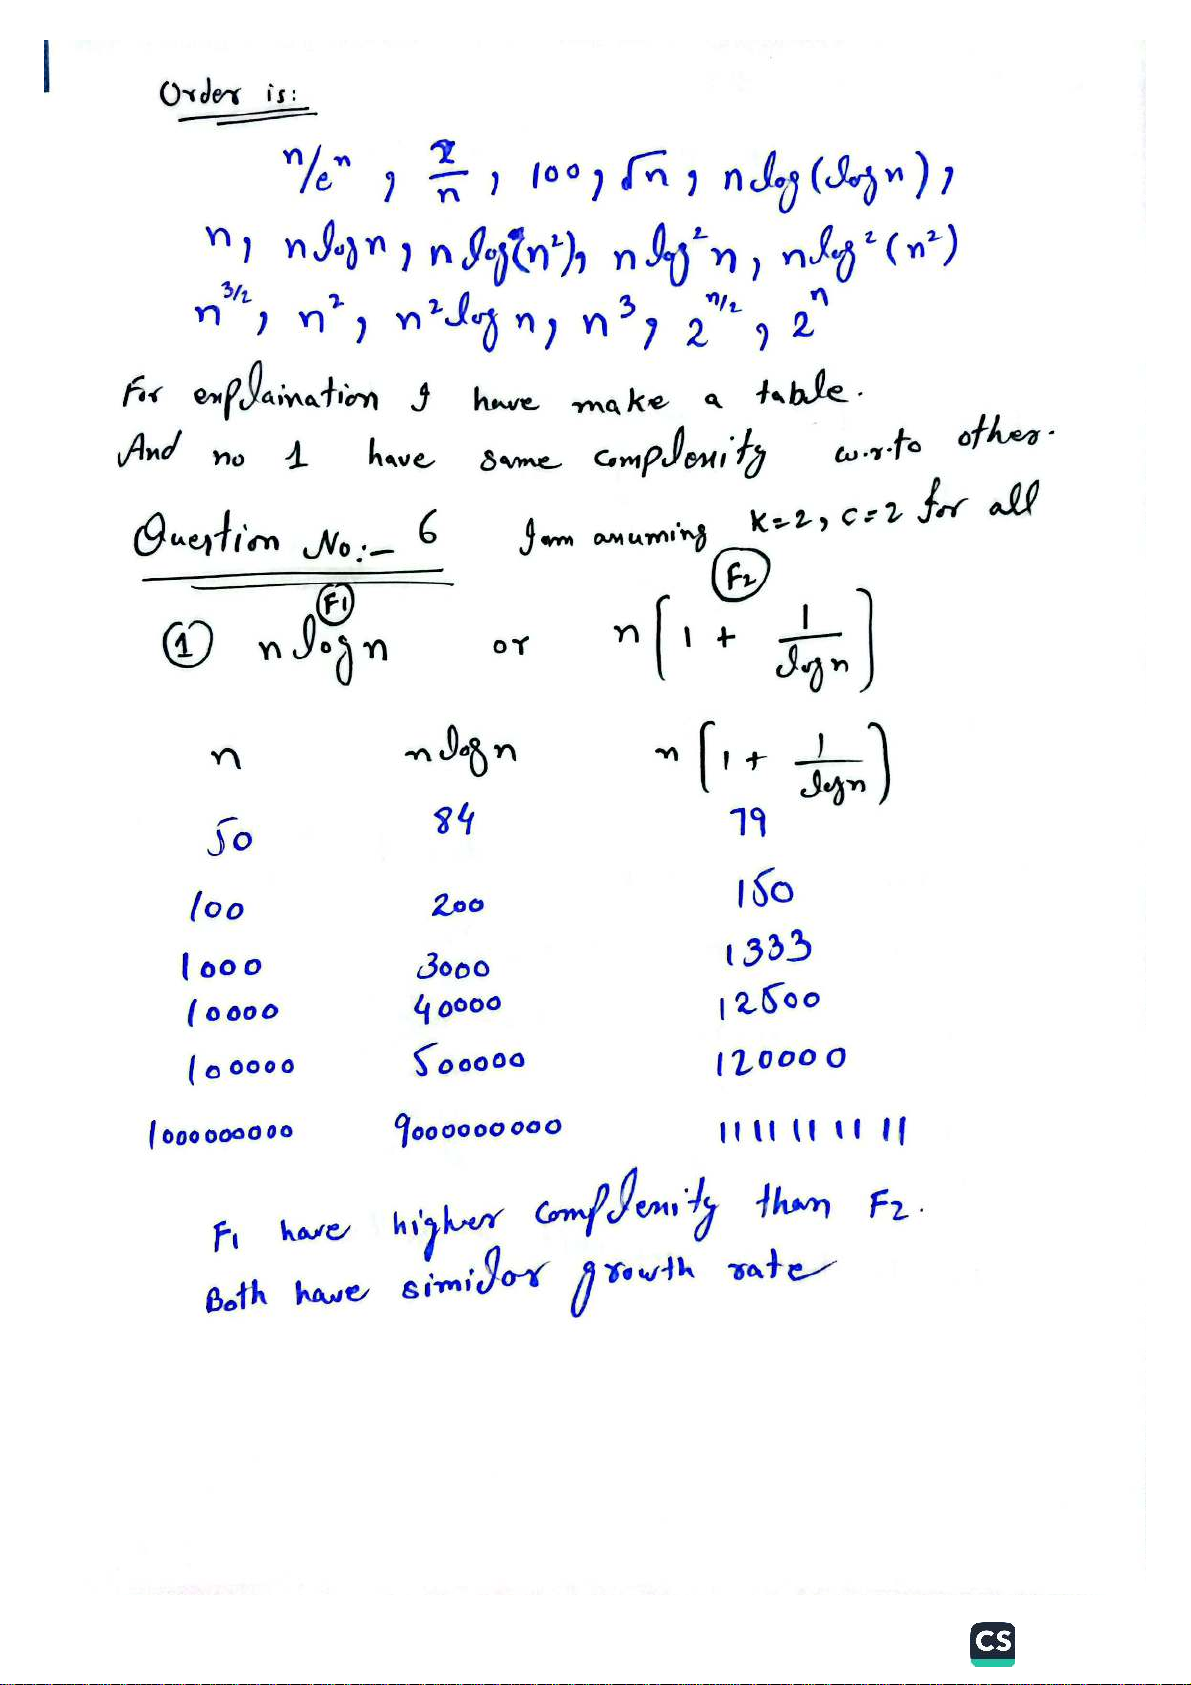 Order is:
n/eⁿ , 2/n , 100 , √n , n log (log n) ,
n , n log n , n log(n²) , n log² n , n log² (n²)
n^3/2 , n² , n² log n , n³ , 2^n/2 , 2ⁿ
For explaination I have make a table.
And no 1 have same complexity w.r.to other.
Question No:- 6 I am assuming K=2, C=2 for all
F1 F2
① n log n or n [ 1 + 1/log n ]
n n log n n [ 1 + 1/log n ]
50 84 79
100 200 150
1000 3000 1333
10000 40000 12500
100000 500000 120000
1000000000 9000000000 1111111111
F1 have higher complexity than F2.
Both have similar growth rate
CS